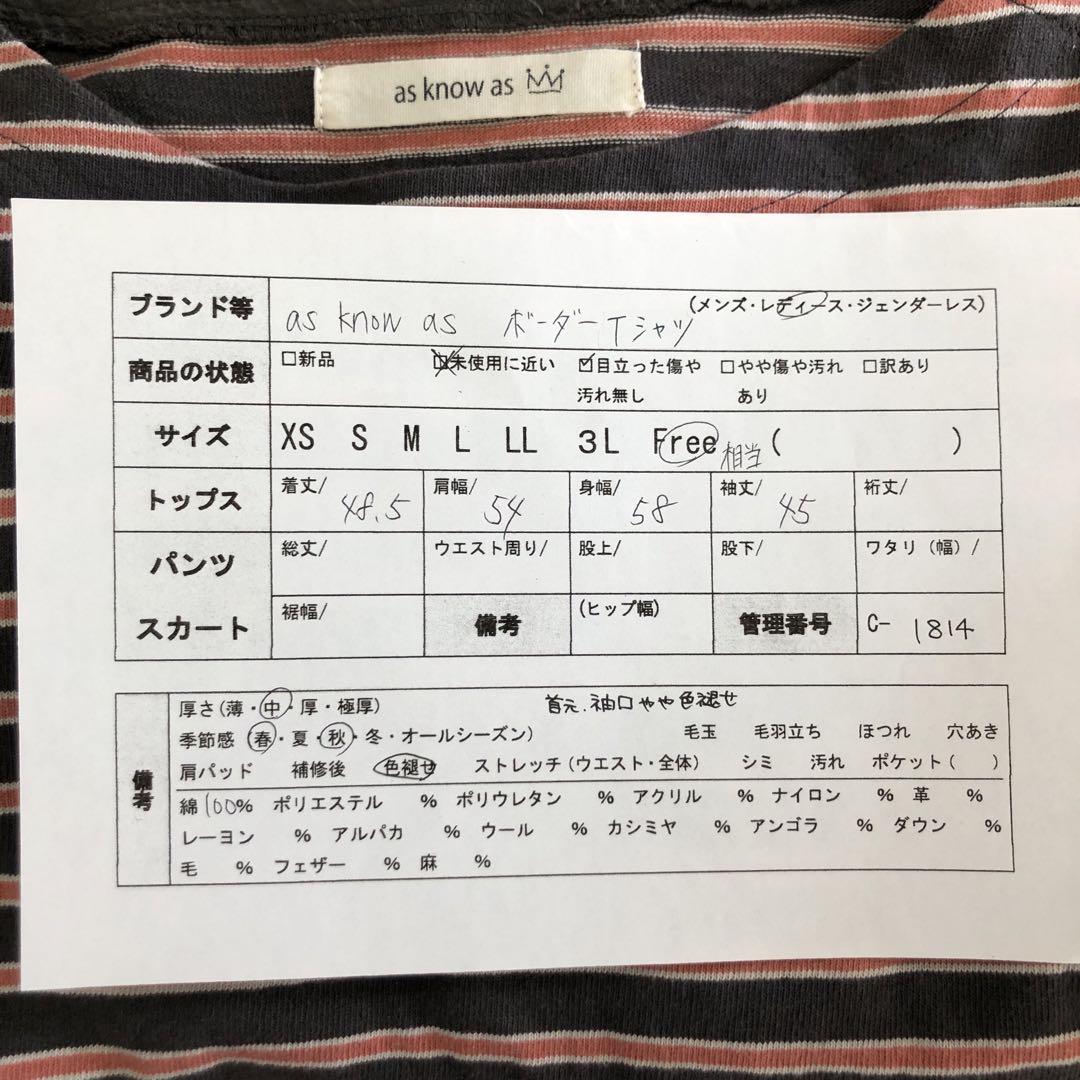 as know as
ブランド等 as know as ボーダーTシャツ (メンズ・レディース・ジェンダーレス)
商品の状態 □新品 □未使用に近い ☑目立った傷や汚れ無し □やや傷や汚れあり □訳あり
サイズ XS S M L LL 3L Free 相当 ( )
トップス 着丈/ 48.5 肩幅/ 54 身幅/ 58 袖丈/ 45 裄丈/
パンツ 総丈/ ウエスト周り/ 股上/ 股下/ ワタリ(幅)/
スカート 裾幅/ 備考 (ヒップ幅) 管理番号 C- 1814
備考
厚さ(薄・中・厚・極厚) 首元.袖口やや色褪せ
季節感 (春・夏・秋・冬・オールシーズン) 毛玉 毛羽立ち ほつれ 穴あき
肩パッド 補修後 色褪せ ストレッチ(ウエスト・全体) シミ 汚れ ポケット( )
綿100% ポリエステル % ポリウレタン % アクリル % ナイロン % 革 %
レーヨン % アルパカ % ウール % カシミヤ % アンゴラ % ダウン %
毛 % フェザー % 麻 %